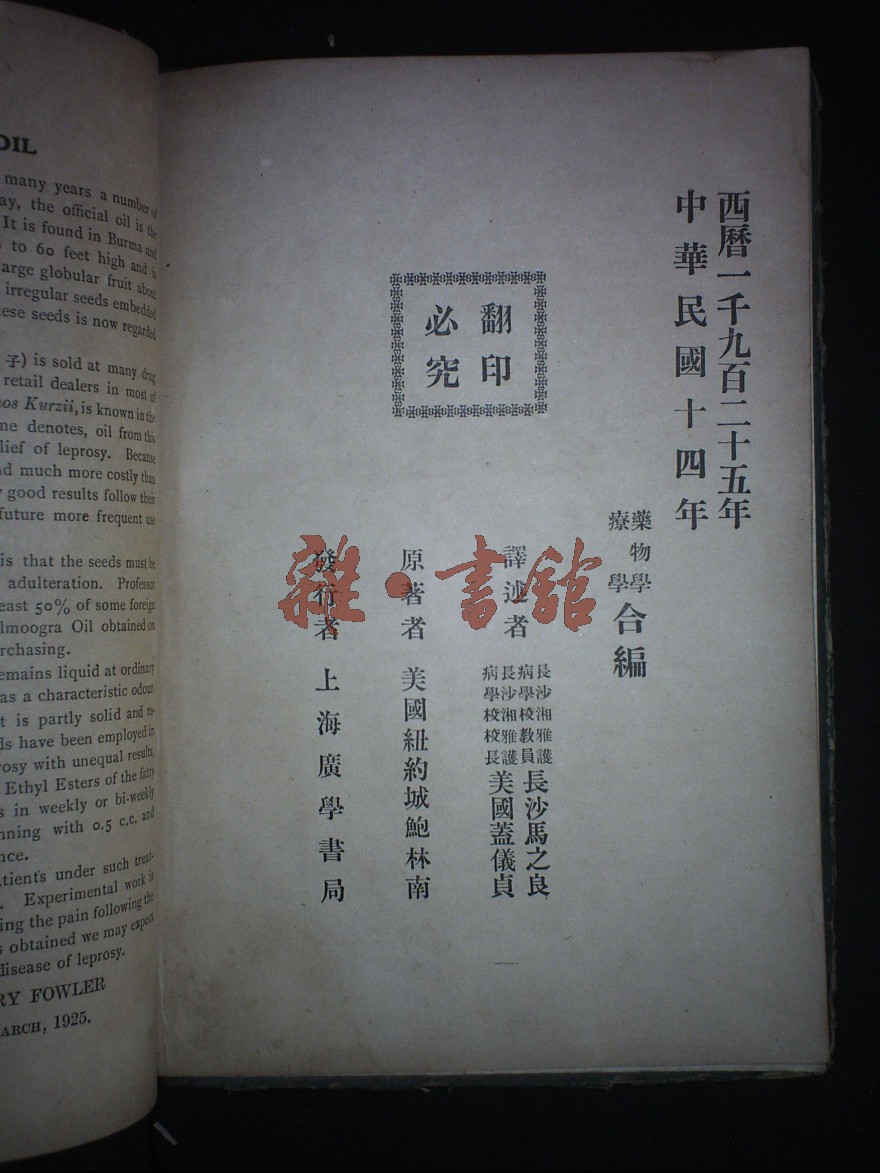 OIL
many years a number of
ay, the official oil is the
It is found in Burma and
to 60 feet high and is
arge globular fruit about
irregular seeds embedded
ese seeds is now regarded
子) is sold at many drug
retail dealers in most of
os Kurzii, is known in the
me denotes, oil from this
lief of leprosy. Because
nd much more costly than
y good results follow their
future more frequent use
is that the seeds must be
adulteration. Professor
east 50% of some foreign
lmoogra Oil obtained on
rchasing.
emains liquid at ordinary
as a characteristic odour-
t is partly solid and re-
ds have been employed in
rosy with unequal results,
Ethyl Esters of the fatty
s in weekly or bi-weekly
nning with 0.5 c.c. and
nce.
atients under such treat-
. Experimental work is
ing the pain following the
s obtained we may expect
disease of leprosy.
RY FOWLER
ARCH, 1925.
西曆一千九百二十五年
中華民國十四年
藥物學
療學
合編
翻印
必究
譯述者
長沙湘雅護
病學校教員
長沙馬之良
長沙湘雅護
病學校校長
美國蓋儀貞
原著者 美國紐約城鮑林南
發行者 上海廣學書局
雜·書館